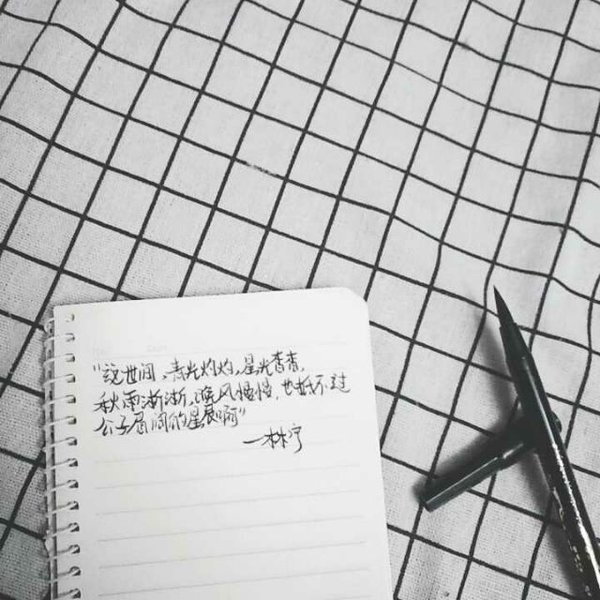 "这世间,青光灼灼,星光杳杳,
秋雨淅淅,晚风慢慢,也抵不过
公子眉间的星辰啊"
—林宁